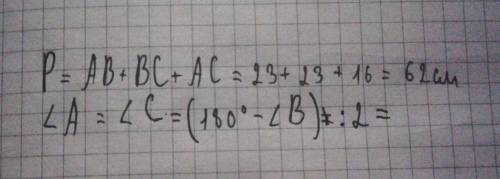 P = AB + BC + AC = 23 + 23 + 16 = 62см
∠A = ∠C = (180° - ∠B) : 2 =